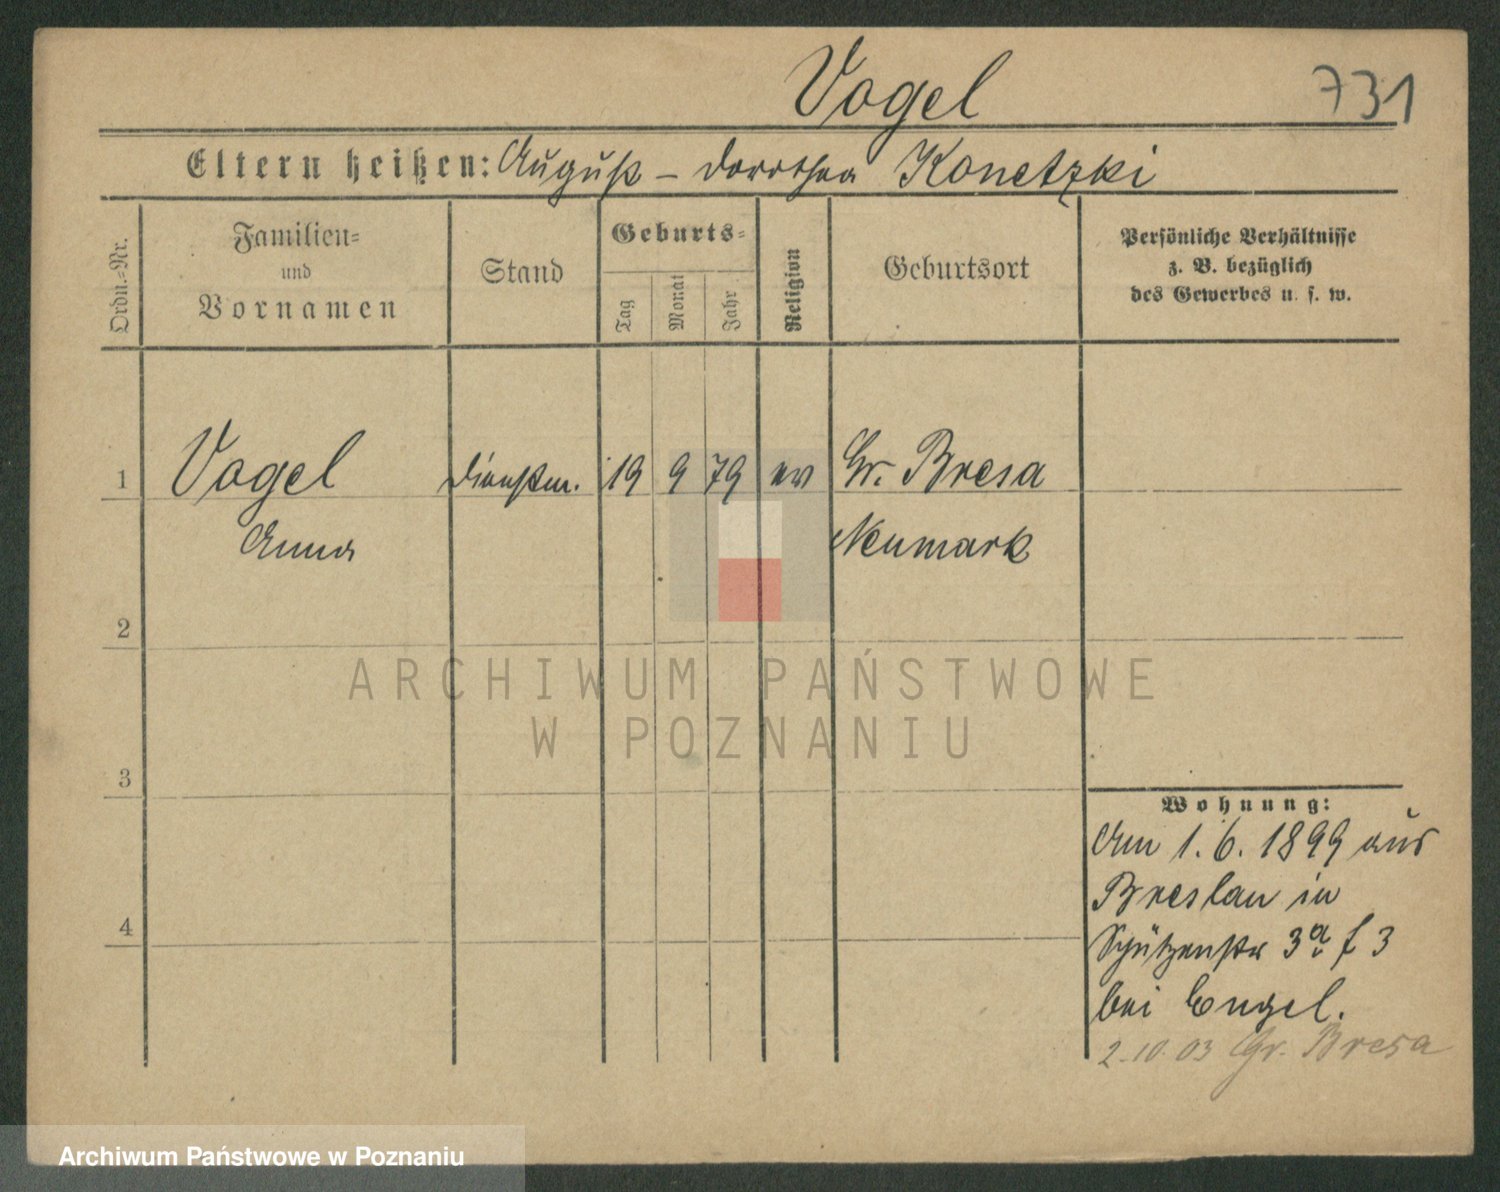 Vogel
731
Eltern heißen: August – Dorothea Konetzki
Ordn.-Nr.
Familien-
und
Vornamen
Stand
Geburts-
Tag
Monat
Jahr
Religion
Geburtsort
Persönliche Verhältnisse
z. B. bezüglich
des Gewerbes u. s. w.
1 Vogel Dienstm. 19 9 79 ev Gr. Bresa
Anna Neumark
2
ARCHIWUM PAŃSTWOWE
W POZNANIU
3
Wohnung:
Am 1.6.1899 aus
Breslau in
4
Schützenstr 3a f 3
bei Engel.
2.10.03 Gr. Bresa
Archiwum Państwowe w Poznaniu